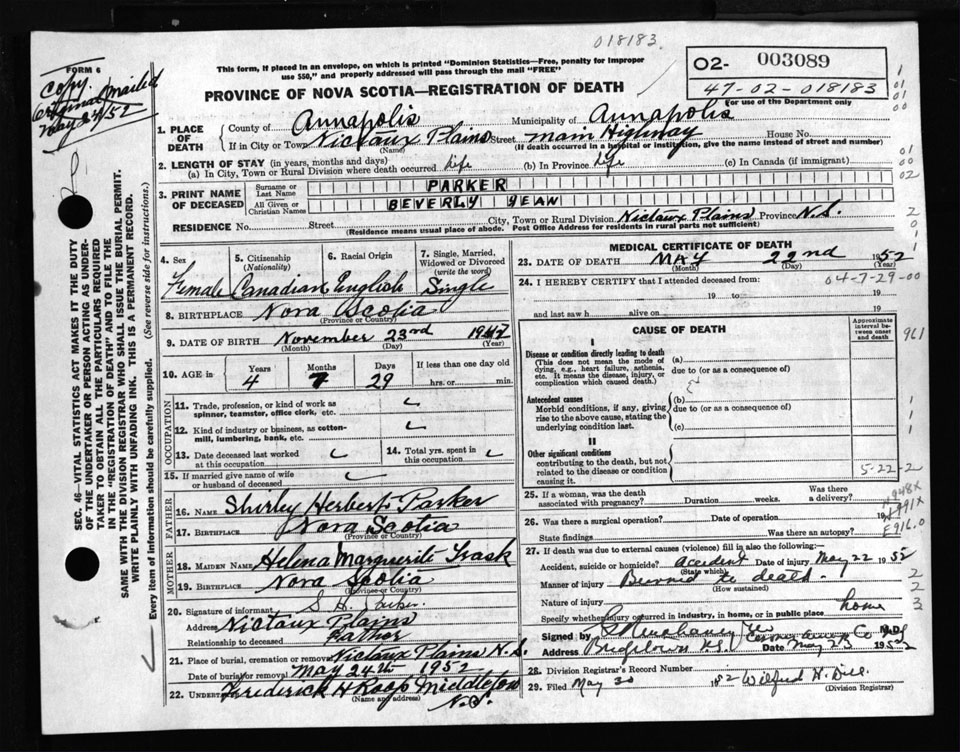 018183
FORM 6
Copy
mailed
May 24/52
This form, if placed in an envelope, on which is printed "Dominion Statistics—Free, penalty for improper
use $50," and properly addressed will pass through the mail "FREE"
PROVINCE OF NOVA SCOTIA—REGISTRATION OF DEATH
02- 003089
47-02-018183
For use of the Department only
1. PLACE OF DEATH
County of Annapolis Municipality of Annapolis
If in City or Town Nictaux Plains Street Main Highway House No.
(Name) (If death occurred in a hospital or institution, give the name instead of street and number)
2. LENGTH OF STAY (in years, months and days)
(a) In City, Town or Rural Division where death occurred life (b) In Province life (c) In Canada (if immigrant)
3. PRINT NAME OF DECEASED
Surname or Last Name PARKER
All Given or Christian Names BEVERLY JEAN
RESIDENCE No. Street City, Town or Rural Division Nictaux Plains Province N.S.
(Residence means usual place of abode. Post Office Address for residents in rural parts not sufficient)
4. Sex Female
5. Citizenship (Nationality) Canadian
6. Racial Origin English
7. Single, Married, Widowed or Divorced (write the word) Single
8. BIRTHPLACE Nova Scotia
(Province or Country)
9. DATE OF BIRTH November 23rd 1947
(Month) (Day) (Year)
10. AGE in Years Months Days If less than one day
4 29 hrs. or min.
OCCUPATION
11. Trade, profession, or kind of work as spinner, teamster, office clerk, etc.
12. Kind of industry or business, as cotton-mill, lumbering, bank, etc.
13. Date deceased last worked at this occupation
14. Total yrs. spent in this occupation
15. If married give name of wife or husband of deceased
FATHER
16. NAME Shirley Herbert Parker
17. BIRTHPLACE Nova Scotia
(Province or Country)
MOTHER
18. MAIDEN NAME Helena Marguerite Trask
19. BIRTHPLACE Nova Scotia
(Province or Country)
20. Signature of informant S. H. Parker
Address Nictaux Plains
Relationship to deceased Father
21. Place of burial, cremation or removal Nictaux Plains N.S.
Date of burial or removal May 24th 1952
22. Undertaker Frederick H Roop Middleton
(Name and address) N.S.
MEDICAL CERTIFICATE OF DEATH
23. DATE OF DEATH MAY 22nd 1952
(Month) (Day) (Year)
04-7-29-00
24. I HEREBY CERTIFY that I attended deceased from:
19 to 19
and last saw h alive on 19
CAUSE OF DEATH
Approximate interval between onset and death
I
Disease or condition directly leading to death (a)
(This does not mean the mode of dying, e.g., heart failure, asthenia, etc. It means the disease, injury, or complication which caused death.)
due to (or as a consequence of)
Antecedent causes (b)
Morbid conditions, if any, giving rise to the above cause, stating the underlying condition last.
due to (or as a consequence of)
(c)
II
Other significant conditions
contributing to the death, but not related to the disease or condition causing it.
5-22-2
25. If a woman, was the death associated with pregnancy? Duration weeks. Was there a delivery?
26. Was there a surgical operation? Date of operation
State findings Was there an autopsy?
E916.0
27. If death was due to external causes (violence) fill in also the following:—
Accident, suicide or homicide? Accident Date of injury May 22 1952
(State which)
Manner of injury Burned to death.
(How sustained)
Nature of injury
Specify whether injury occurred in industry, in home, or in public place home
Signed by M.D.
Address N.S. Date May 23 1952
28. Division Registrar's Record Number
29. Filed May 30 1952 Wilfred H. Dill
(Division Registrar)
SEC. 46—VITAL STATISTICS ACT MAKES IT THE DUTY
OF THE UNDERTAKER OR PERSON ACTING AS UNDER-
TAKER TO OBTAIN ALL THE PARTICULARS REQUIRED
IN THE "REGISTRATION OF DEATH" AND TO FILE THE
SAME WITH THE DIVISION REGISTRAR WHO SHALL ISSUE THE BURIAL PERMIT.
WRITE PLAINLY WITH UNFADING INK. THIS IS A PERMANENT RECORD.
Every item of information should be carefully supplied. (See reverse side for instructions.)